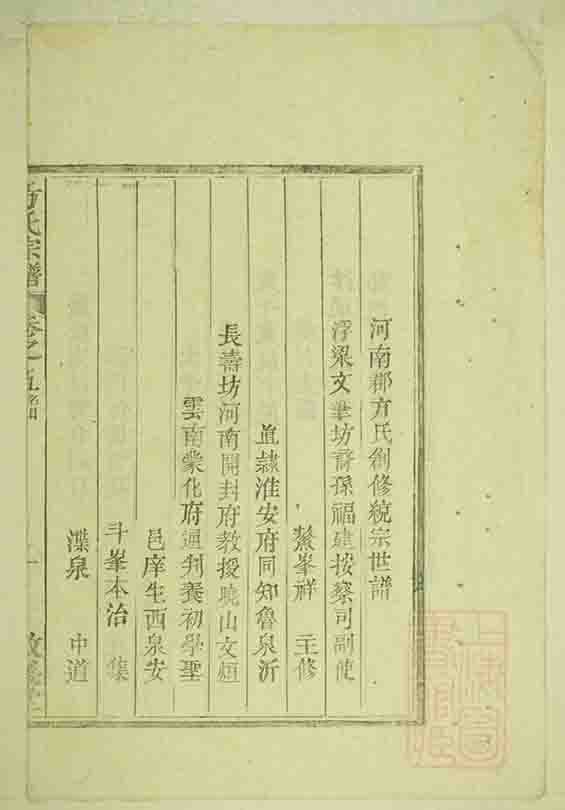 河南郡方氏創修統宗世譜
浮梁文筆坊裔孫福建按察司副使
鰲峯祥 主修
直隸淮安府同知魯泉沂
長壽坊河南開封府教授曉山文烜
雲南蒙化府通判養初學聖
邑庠生西泉安
斗峯本治 集
澤泉 中道
方氏宗譜 卷之 一